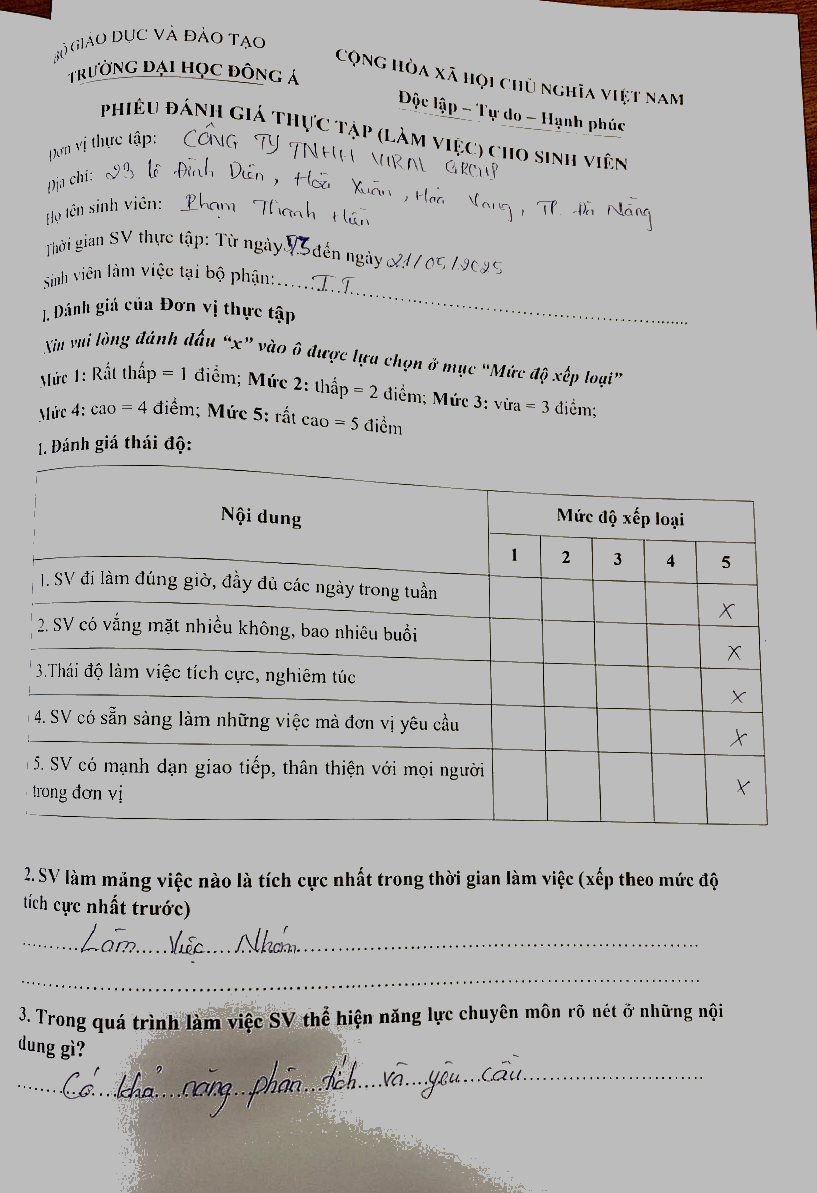 BỘ GIÁO DỤC VÀ ĐÀO TẠO
TRƯỜNG ĐẠI HỌC ĐÔNG Á
CỘNG HÒA XÃ HỘI CHỦ NGHĨA VIỆT NAM
Độc lập – Tự do – Hạnh phúc
PHIẾU ĐÁNH GIÁ THỰC TẬP (LÀM VIỆC) CHO SINH VIÊN
Đơn vị thực tập: CÔNG TY TNHH VIRAL GROUP
Địa chỉ: 23 Lê Đình Diên, Hoà Xuân, Hoà Vang, TP. Đà Nẵng
Họ tên sinh viên: Phạm Thanh Hiền
Thời gian SV thực tập: Từ ngày 5/3 đến ngày 21/05/2025
Sinh viên làm việc tại bộ phận: I.T
I. Đánh giá của Đơn vị thực tập
Xin vui lòng đánh dấu “x” vào ô được lựa chọn ở mục “Mức độ xếp loại”
Mức 1: Rất thấp = 1 điểm; Mức 2: thấp = 2 điểm; Mức 3: vừa = 3 điểm;
Mức 4: cao = 4 điểm; Mức 5: rất cao = 5 điểm
1. Đánh giá thái độ:
Nội dung Mức độ xếp loại
1 2 3 4 5
1. SV đi làm đúng giờ, đầy đủ các ngày trong tuần x
2. SV có vắng mặt nhiều không, bao nhiêu buổi x
3.Thái độ làm việc tích cực, nghiêm túc x
4. SV có sẵn sàng làm những việc mà đơn vị yêu cầu x
5. SV có mạnh dạn giao tiếp, thân thiện với mọi người x
trong đơn vị
2. SV làm mảng việc nào là tích cực nhất trong thời gian làm việc (xếp theo mức độ
tích cực nhất trước)
Làm Việc Nhóm
3. Trong quá trình làm việc SV thể hiện năng lực chuyên môn rõ nét ở những nội
dung gì?
Có khả năng phân tích và yêu cầu